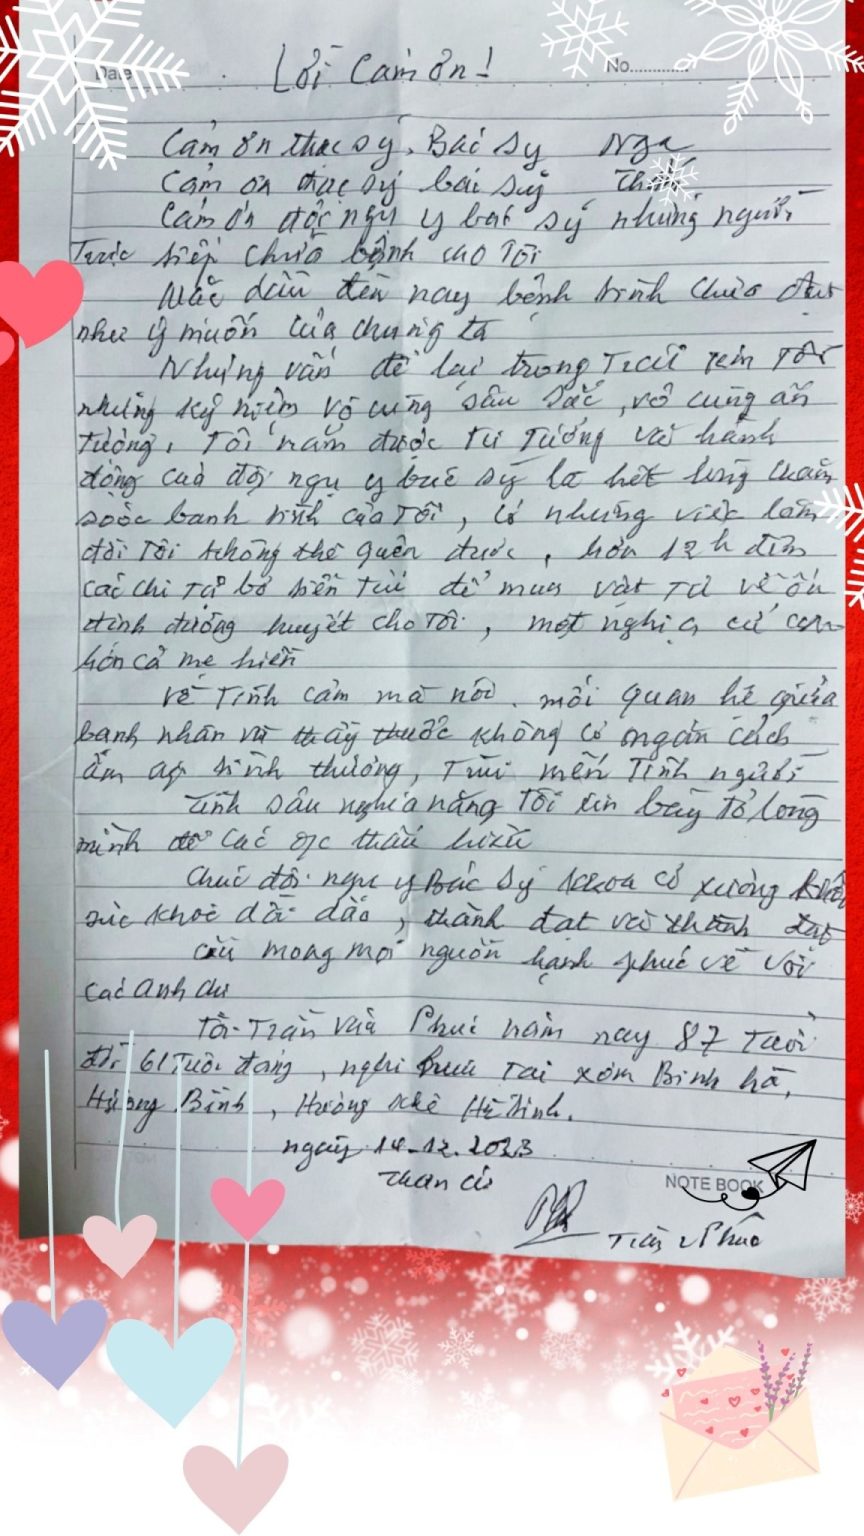 Date
Lời Cảm ơn!
No............
Cảm ơn thạc sỹ, Bác sỹ Nga
Cảm ơn thạc sỹ bác sỹ
Cảm ơn đội ngũ y bác sỹ những người
Trực tiếp chữa bệnh cho Tôi
Mặc dầu đến nay bệnh tình chưa đạt
như ý muốn của chúng ta
Nhưng vẫn để lại trong Trái tim Tôi
những kỷ niệm vô cùng sâu sắc, vô cùng ấn
tượng, Tôi nắm được Tư Tưởng và hành
động của đội ngũ y bác sỹ là hết lòng chăm
soóc bệnh tình của Tôi, có những việc làm
đời Tôi không thể quên được, hơn 12h đêm
các chị tự bỏ tiền túi để mua vật tư về ổn
định đường huyết cho Tôi, một nghĩa cử cao
hơn cả mẹ hiền
về Tình cảm mà nói, mối quan hệ giữa
bệnh nhân và thầy thuốc không có ngăn cách
ấm áp tình thương, Trìu mến Tình người
Tình sâu nghĩa nặng Tôi xin bày tỏ lòng
mình để các thấu hiểu
Chúc đội ngũ y Bác sỹ khoa cơ xương khớp
sức khoẻ dồi dào, thành đạt và thành đạt
cầu mong mọi nguồn hạnh phúc về với
các anh chị
Tôi Trần Phúc năm nay 87 Tuổi
61 Tuổi đảng, nghỉ hưu Tại xóm Bình hà,
Hương Bình, Hương Khê Hà Tĩnh.
ngày 14-12.2023
Thân ái
NOTE BOOK
Trần Phúc